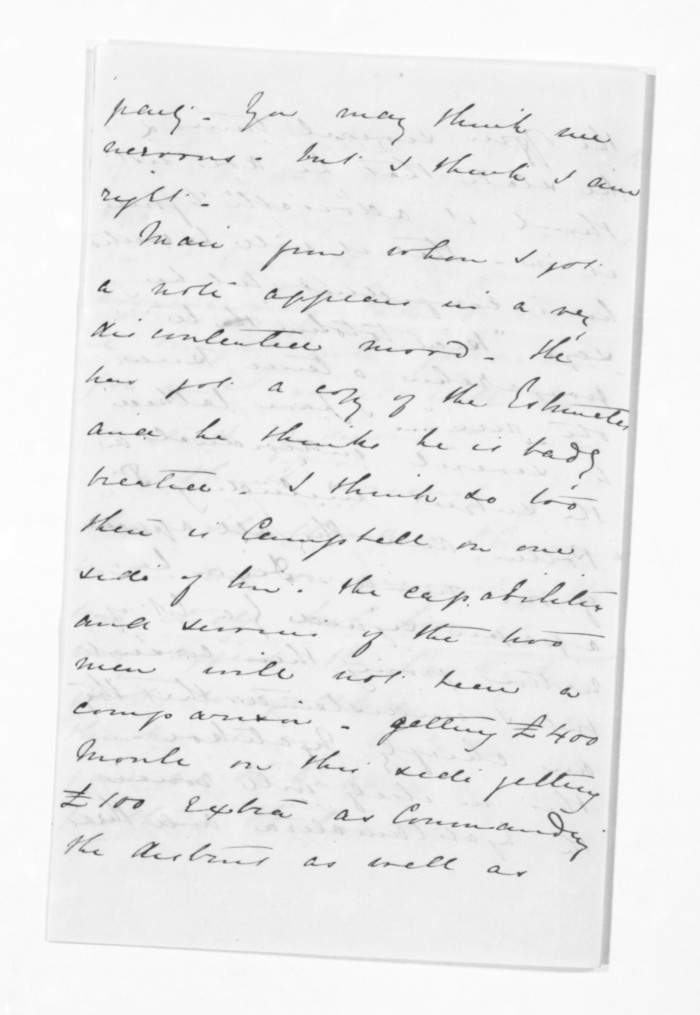 party. You may think me
nervous - but I think I am
right.
Mair from whom I got
a note appears in a very
discontented mood - He
has got a copy of the Estimates
and he thinks he is badly
treated. I think so too
there is Campbell on one
side of him. the capabilities
and services of the two
men will not bear a
comparison - getting £400
Moule on this side getting
£100 extra as Commanding
the district as well as